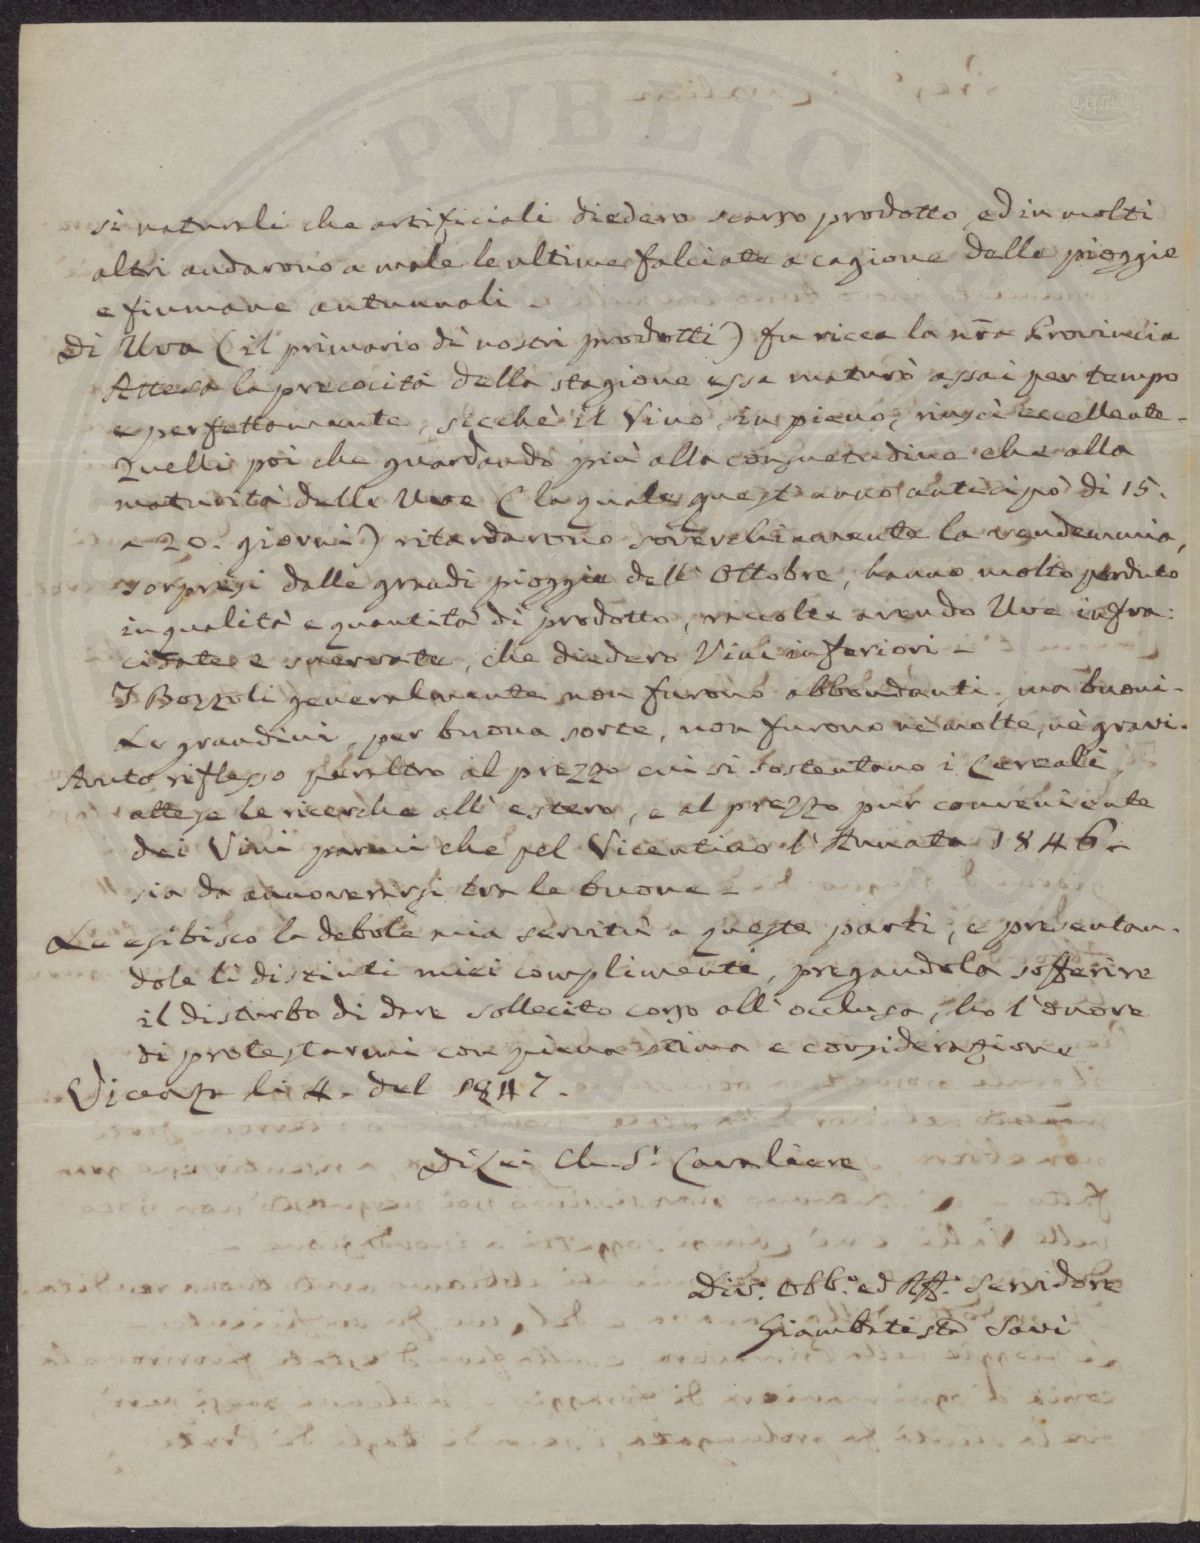 PVBLIC
OFFICE
sì naturali che artificiali diedero scarso prodotto, ed in molti
altri andarono a male le ultime falciate a cagione delle pioggie
e fiumane autunnali -
Di Uva (il primario di nostri prodotti) fu ricca la nr̄a Provincia
Attesa la precocità della stagione essa maturò assai per tempo
e perfettamente, sicchè il Vino, in pieno, riuscì eccellente -
Quelli poi che guardando più alla consuetudine che alla
maturità delle Uve (la quale quest'anno anticipò di 15.
a 20. giorni) ritardarono soverchiamente la vendemmia,
sorpresi dalle grandi pioggie dell'Ottobre, hanno molto perduto
in qualità e quantità di prodotto, raccolte avendo Uve infra:
cidate e snervate, che diedero Vini inferiori -
I Bozzoli generalmente non furono abbondanti, ma buoni -
Le grandini, per buona sorte, non furono nè molte, nè gravi.
Avuto riflesso peraltro al prezzo cui si sostentano i Cereali,
attese le ricerche all'estero, e al prezzo pur conveniente
dei Vini parmi che pel Vicentino l'Annata 1846.
sia da annoverarsi tra le buone -
Le esibisco la debole mia servitù a queste parti, e presentan-
dole li distinti miei complimenti, pregandola sofferire
il disturbo di dare sollecito corso all'occlusa, ho l'onore
di protestarmi con piena stima e considerazione
Vicenza li 4. del 1847.
Di Lei Ch. S.r Cavaliere
Div.o Obb.o ed Aff.o Servidore
Giambatista Savi